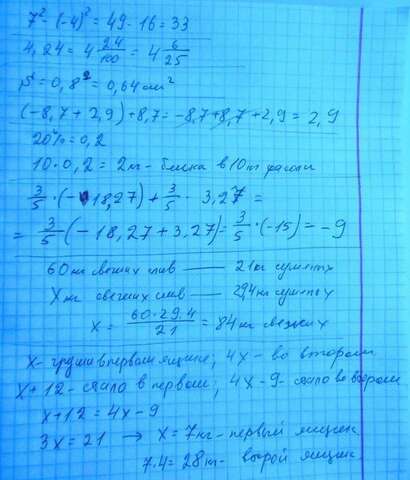 7² - (-4)² = 49 - 16 = 33
4,24 = 4 24/100 = 4 6/25
S = 0,8² = 0,64 см²
(-8,7 + 2,9) + 8,7 = -8,7 + 8,7 + 2,9 = 2,9
20% = 0,2
10 · 0,2 = 2кг - белка в 10кг фасоли
3/5 · (-18,27) + 3/5 · 3,27 =
= 3/5 (-18,27 + 3,27) = 3/5 · (-15) = -9
60 кг свежих слив — 21кг сушеных
X кг свежих слив — 29,4кг сушеных
x = 60·29,4/21 = 84кг свежих
x - груши в первом ящике; 4x - во втором
x + 12 - стало в первом; 4x - 9 - стало во втором
x + 12 = 4x - 9
3x = 21 → x = 7кг - первый ящик
7·4 = 28кг - второй ящик